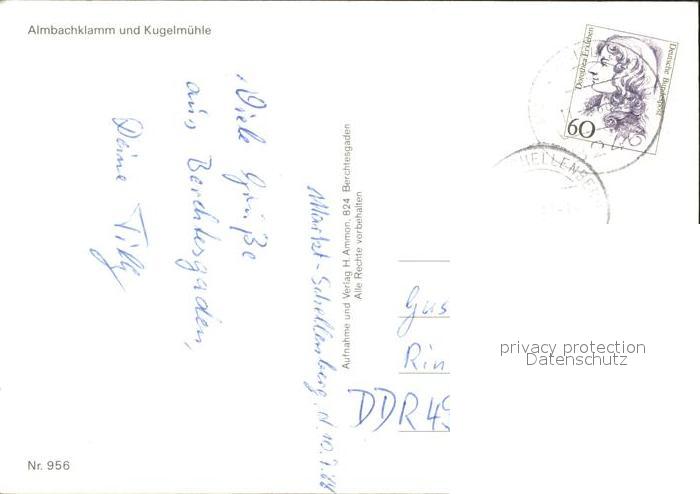 Almbachklamm und Kugelmühle
Viele Grüße
aus Berchtesgaden,
Deine Tilly
Markt-Schellenberg, d. 10.
Aufnahme und Verlag H. Ammon, 824 Berchtesgaden
Alle Rechte vorbehalten
Dorothea Erxleben
Deutsche Bundespost
60
HELLENBE
Gus
Rin
DDR 49
privacy protection
Datenschutz
Nr. 956